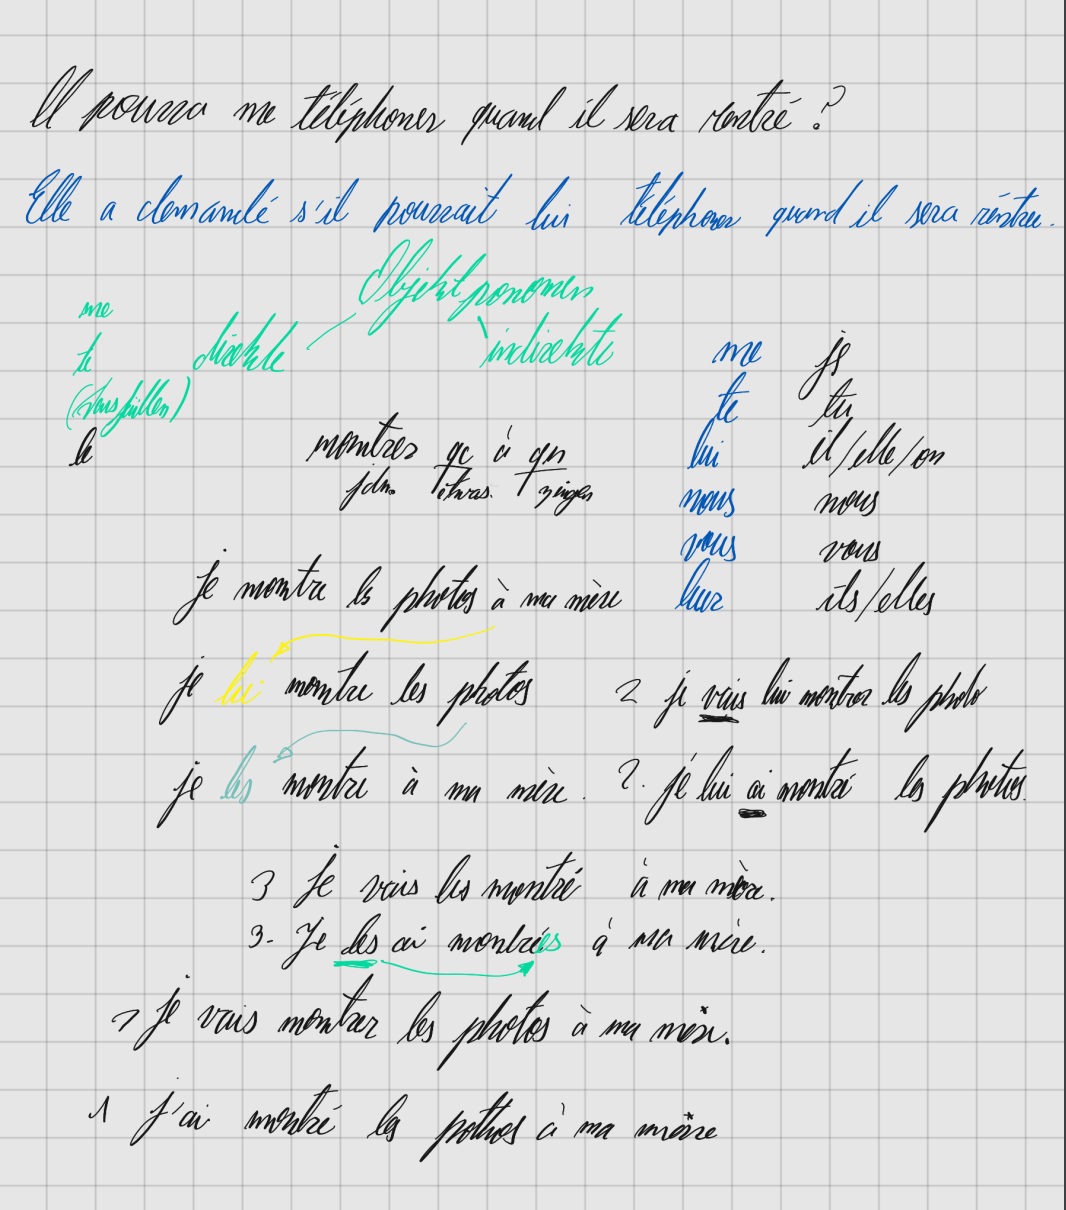 Il pourra me téléphoner quand il sera rentré ?
Elle a demandé s'il pourrait lui téléphoner quand il sera rentré.
Objektpronomen
direkte
indirekte
me
te
le
me je
te tu
lui il/elle/on
nous nous
vous vous
leur ils/elles
montrer qc à qn
jdn. etwas. zeigen
je montre les photos à ma mère
je lui montre les photos
2 je vais lui montrer les photo
je les montre à ma mère.
2. je lui ai montré les photos.
3 Je vais les montré à ma mère.
3. Je les ai montrées à ma mère.
1 Je vais montrer les photos à ma mère.
1 J'ai montré les pothos à ma mère